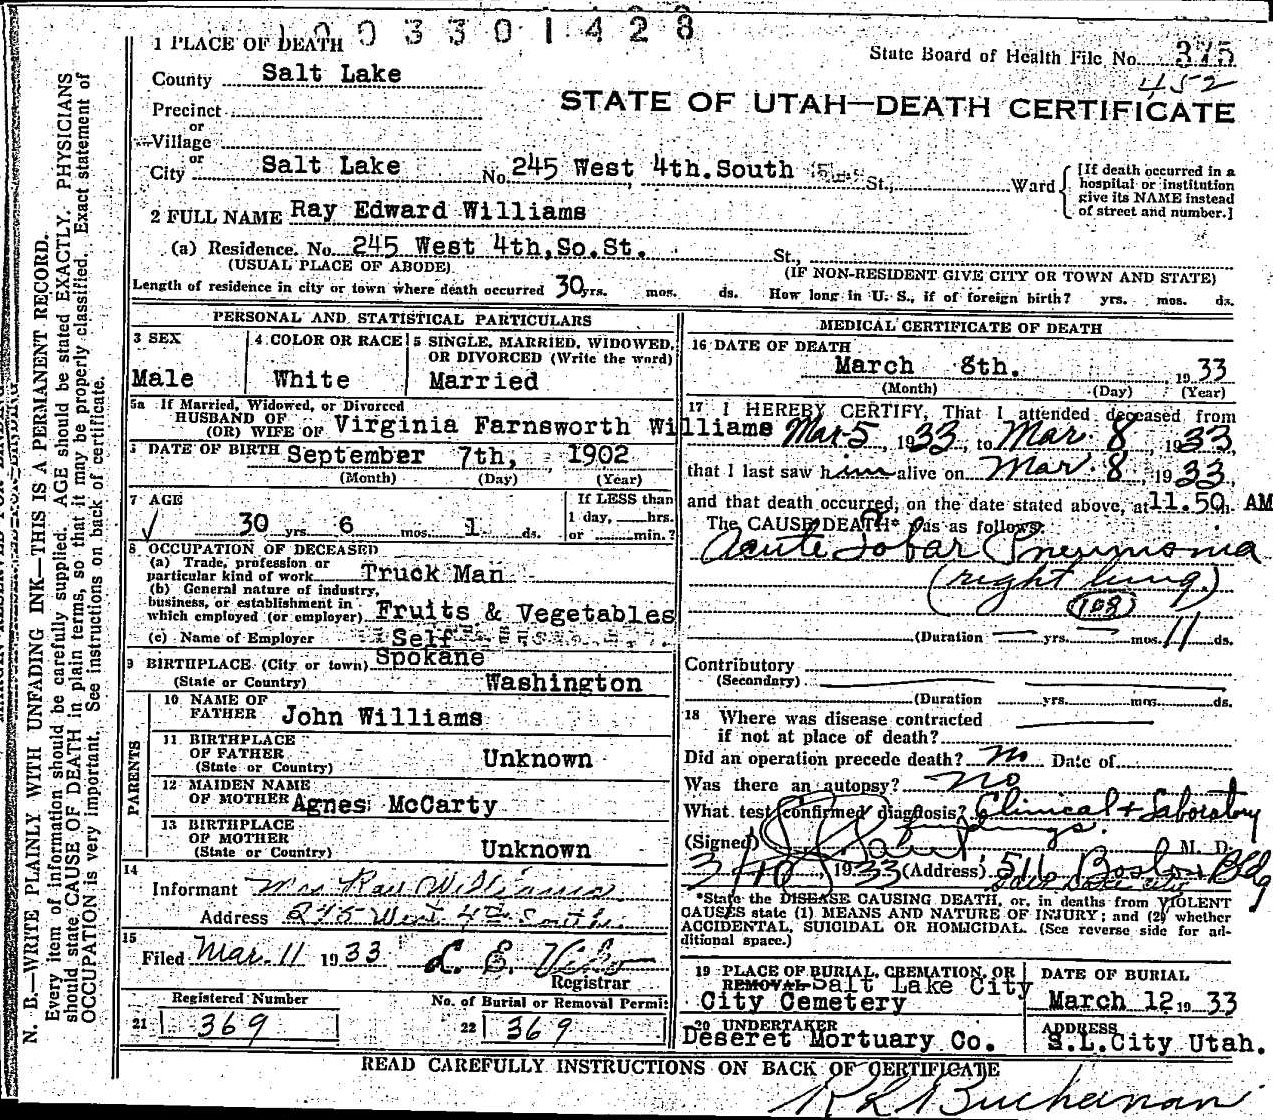 1003301428
1 PLACE OF DEATH
State Board of Health File No. 375
452
County Salt Lake
STATE OF UTAH—DEATH CERTIFICATE
Precinct
or
Village
or
City Salt Lake No. 245 West 4th.South St., Ward
[If death occurred in a
hospital or institution
give its NAME instead
of street and number.]
2 FULL NAME Ray Edward Williams
(a) Residence. No. 245 West 4th,So.St. St.,
(USUAL PLACE OF ABODE) (IF NON-RESIDENT GIVE CITY OR TOWN AND STATE)
Length of residence in city or town where death occurred 30 yrs. mos. ds. How long in U. S., if of foreign birth? yrs. mos. ds.
PERSONAL AND STATISTICAL PARTICULARS
3 SEX
Male
4 COLOR OR RACE
White
5 SINGLE, MARRIED, WIDOWED,
OR DIVORCED (Write the word)
Married
5a If Married, Widowed, or Divorced
HUSBAND OF
(OR) WIFE OF Virginia Farnsworth Williams
DATE OF BIRTH September 7th, 1902
(Month) (Day) (Year)
7 AGE
30 yrs. 6 mos. 1 ds.
If LESS than
1 day, hrs.
or min.?
8 OCCUPATION OF DECEASED
(a) Trade, profession or
particular kind of work Truck Man
(b) General nature of industry,
business, or establishment in
which employed (or employer) Fruits & Vegetables
(c) Name of Employer Self
9 BIRTHPLACE (City or town) Spokane
(State or Country) Washington
PARENTS
10 NAME OF
FATHER John Williams
11 BIRTHPLACE
OF FATHER
(State or Country) Unknown
12 MAIDEN NAME
OF MOTHER Agnes McCarty
13 BIRTHPLACE
OF MOTHER
(State or Country) Unknown
14
Informant Mrs Ray Williams
Address 245 West 4th South.
15
Filed Mar. 11 1933
Registrar
Registered Number
21 369
No. of Burial or Removal Permit
22 369
MEDICAL CERTIFICATE OF DEATH
16 DATE OF DEATH
March 8th. 1933
(Month) (Day) (Year)
17 I HEREBY CERTIFY, That I attended deceased from
Mar 5, 1933, to Mar. 8, 1933,
that I last saw him alive on Mar 8, 1933,
and that death occurred, on the date stated above, at 11.50 m. AM
The CAUSE DEATH* was as follows:
Acute Lobar Pneumonia
(right lung)
(108)
(Duration yrs. mos. 11 ds.
Contributory
(Secondary)
(Duration yrs. mos. ds.
18 Where was disease contracted
if not at place of death?
Did an operation precede death? no Date of
Was there an autopsy? no
What test confirmed diagnosis? Clinical + Laboratory
findings.
(Signed) M. D.
3/10, 1933 (Address) 516 Boston Bldg
Salt Lake City
*State the DISEASE CAUSING DEATH, or, in deaths from VIOLENT
CAUSES state (1) MEANS AND NATURE OF INJURY; and (2) whether
ACCIDENTAL, SUICIDAL OR HOMICIDAL. (See reverse side for ad-
ditional space.)
19 PLACE OF BURIAL, CREMATION, OR
REMOVAL Salt Lake City
City Cemetery
DATE OF BURIAL
March 12 1933
20 UNDERTAKER
Deseret Mortuary Co.
ADDRESS
S.L.City Utah.
READ CAREFULLY INSTRUCTIONS ON BACK OF CERTIFICATE
R L Buchanan
N. B.—WRITE PLAINLY WITH UNFADING INK—THIS IS A PERMANENT RECORD.
Every item of information should be carefully supplied. AGE should be stated EXACTLY. PHYSICIANS
should state CAUSE OF DEATH in plain terms, so that it may be properly classified. Exact statement of
OCCUPATION is very important. See instructions on back of certificate.